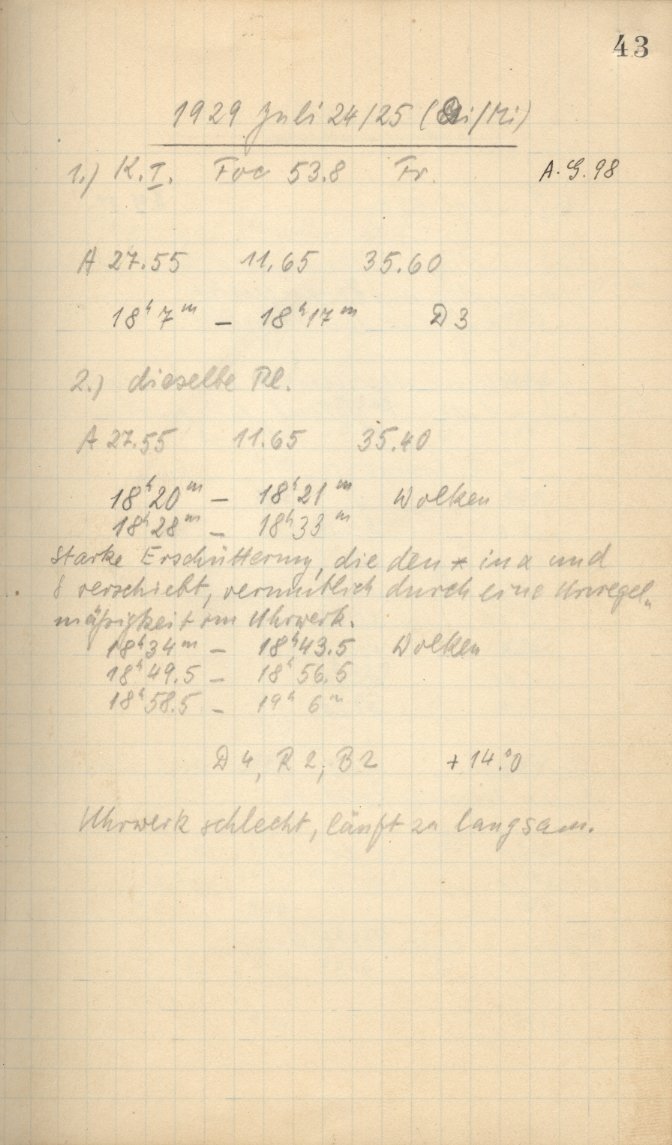 43
1929 Juli 24/25 (Mi/Mi)
1.) K.I. Foc 53.8 Fr. A.G. 98
A 27.55 11.65 35.60
18ʰ7ᵐ – 18ʰ17ᵐ D3
2.) dieselbe Pl.
A 27.55 11.65 35.40
18ʰ20ᵐ – 18ʰ21ᵐ Wolken
18ʰ28ᵐ – 18ʰ33ᵐ
Starke Erschütterung, die den * in α und
δ verschiebt, vermutlich durch eine Unregel-
mäßigkeit im Uhrwerk.
18ʰ34ᵐ – 18ʰ43.5 Wolken
18ʰ49.5 – 18ʰ56.5
18ʰ58.5 – 19ʰ 6ᵐ
D4, R2, B2 +14.°0
Uhrwerk schlecht, läuft zu langsam.